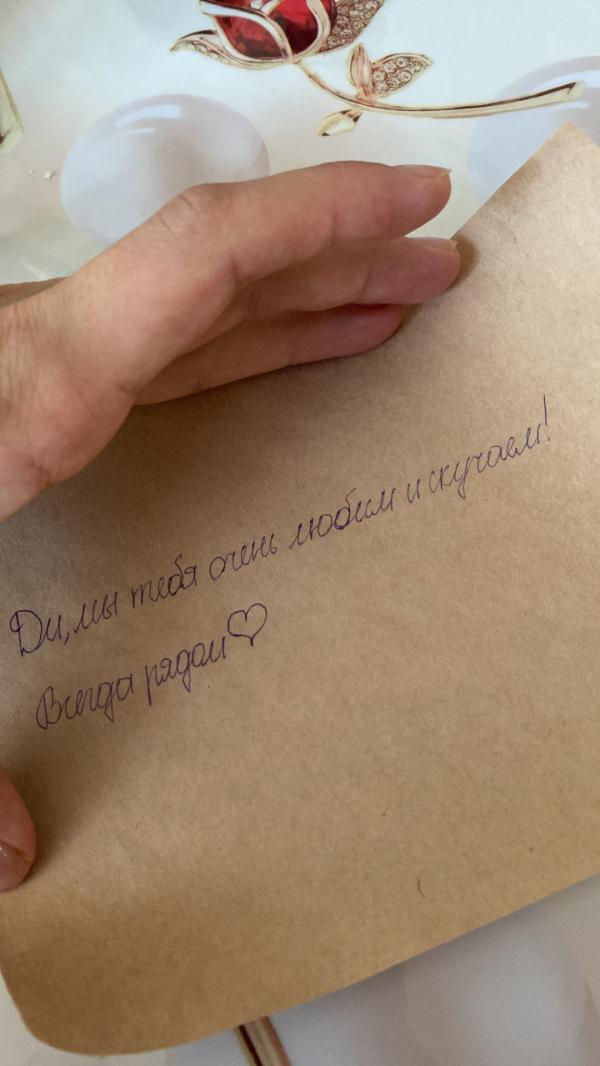 Ди, мы тебя очень любим и скучаем!
Всегда рядом♡